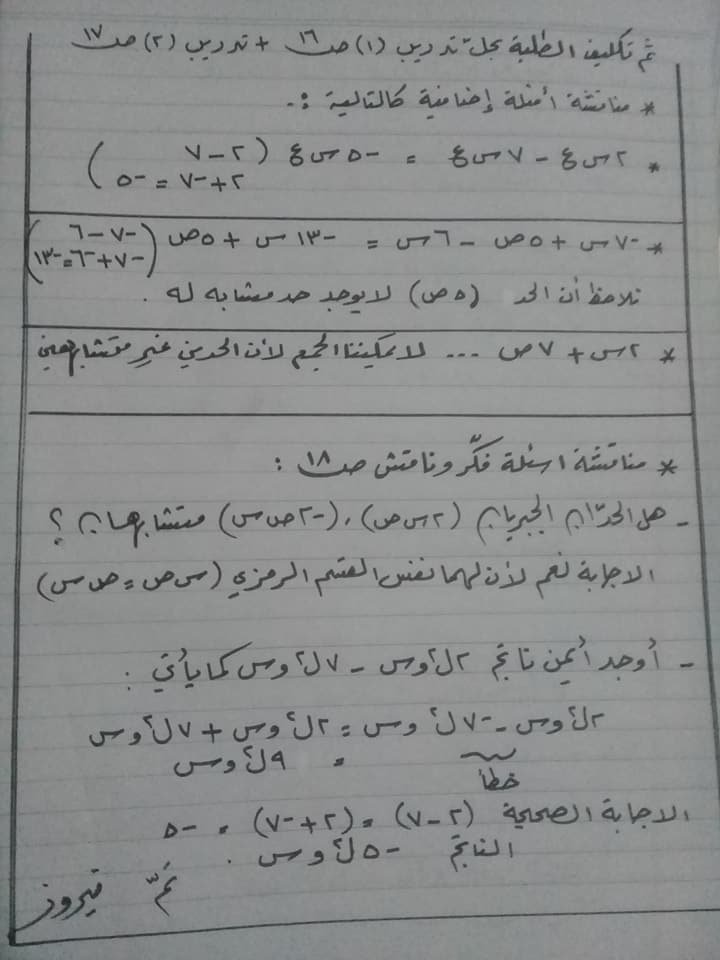 ثم تكليف الطلبة بحل تدريب (١) ص١٦ + تدريب (٢) ص١٧
* مناقشة أمثلة إضافية كالتالية :-
* ٢س ع - ٧س ع = -٥ س ع (٢ - ٧
٢ + -٧ = -٥)
* -٧س + ٥ص - ٦س = -١٣س + ٥ص (-٧ - ٦
-٧ + -٦ = -١٣)
نلاحظ أن الحد (٥ص) لا يوجد حد مشابه له .
* ٢س + ٧ص ... لا يمكننا الجمع لأن الحدين غير متشابهين
* مناقشة اسئلة فكّر وناقش ص١٨ :
- هل الحدّان الجبريان (٢س ص) ، (-٢ص س) متشابهان ؟
الاجابة نعم لأن لهما نفس القسم الرمزي (س ص = ص س)
- أوجد أيمن ناتج ٢ل^٢ وس - ٧ل^٢ وس كما يأتي :
٢ل^٢ وس - -٧ل^٢ وس = ٢ل^٢ وس + ٧ل^٢ وس
خطأ = ٩ل^٢ وس
الاجابة الصحيحة (٢ - ٧) = (٢ + -٧) = -٥
الناتج -٥ل^٢ وس .
تمّ فيروز